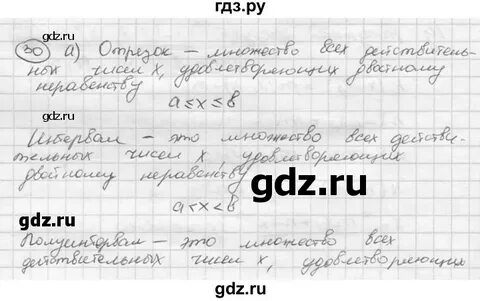 гдз.ру
30 а) Отрезок – множество всех действитель-
ных чисел x, удовлетворяющих двойному
неравенству
a ≤ x ≤ в
gdz.ru
Интервал – это множество всех действи-
тельных чисел x, удовлетворяющих
двойному неравенству
gdz.ru
a < x < в
gdz.ru
Полуинтервал – это множество всех
действительных чисел x, удовлетворяющих
gdz.ru
gdz.ru